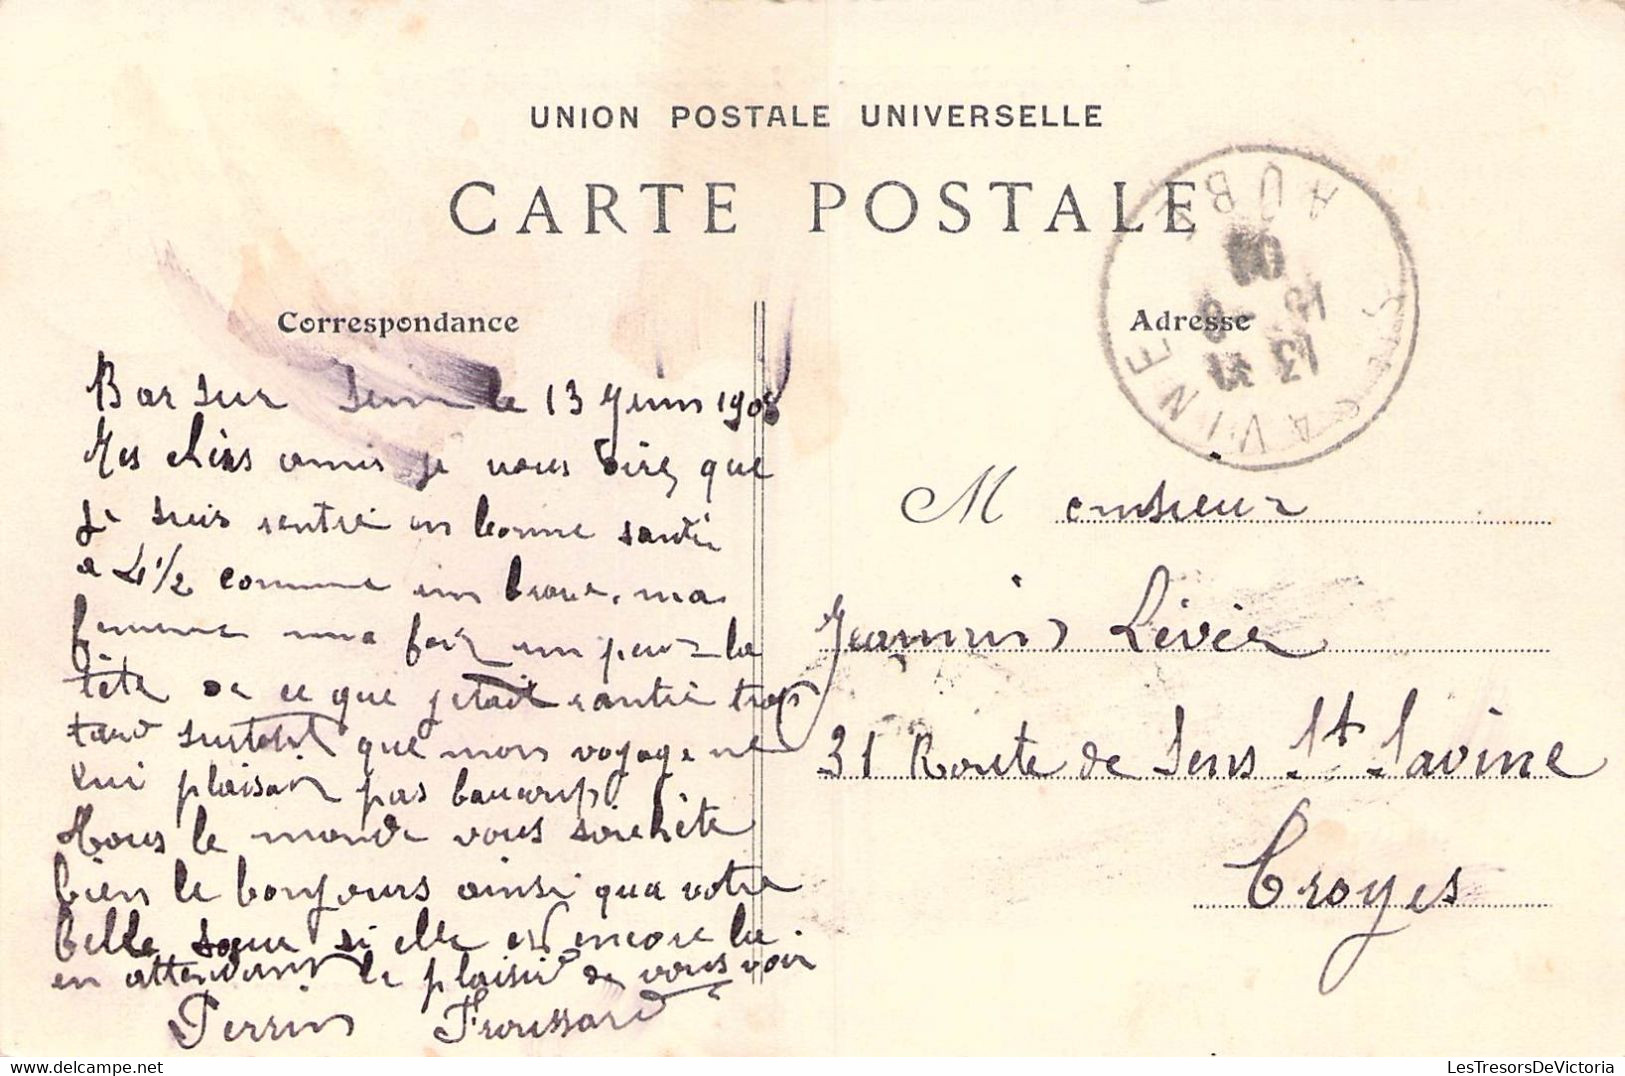 UNION POSTALE UNIVERSELLE
CARTE POSTALE
Correspondance
Bar sur Seine le 13 Juin 1908
Mes chèrs amis je vous direz que
je suis rentré en bonne santé
a 4 1/2 comme un brave. ma
femme ma fait un peut la
tête de ce que j'etait rantré trop
tard surtout que mon voyage ne
lui plaisait pas baucoup
tous le monde vous souhète
bien le bonjours ainsi que votre
belle sœur si elle est encore la.
en attendant le plaisir de vous voir
Perrin Froussard
Adresse
Monsieur
Jeannin Livier
31 Route de Sens St Savine
Troyes
STE SAVINE
AUBE
13
08
LesTresorsDeVictoria